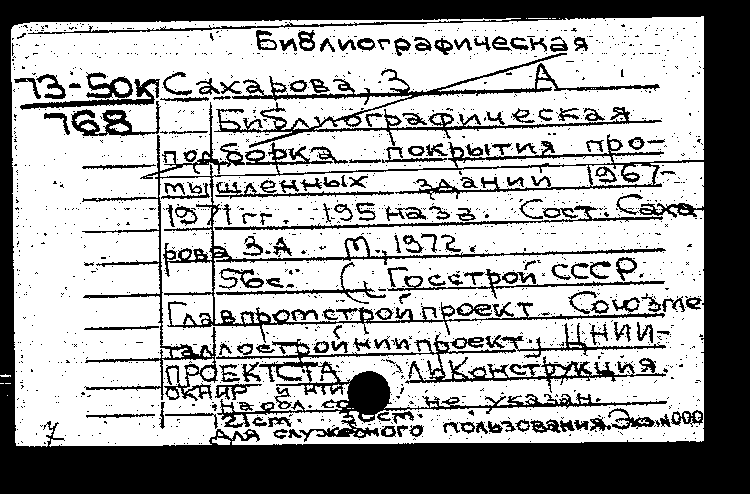 Библиографическая
73-50к Сахарова, З А
768 Библиографическая
подборка покрытия про-
мышленных зданий 1967-
1971 гг. 195 назв. Сост. Саха
рова З.А. М., 1972.
56с. Госстрой СССР.
Главпромстройпроект. Союзме
таллостройниипроект, ЦНИИ-
ПРОЕКТСТА ЛЬКонструкция.
ОКНИР и НТИ
на обл. не указан.
21см.
Для служебного пользования. Экз.н000
7